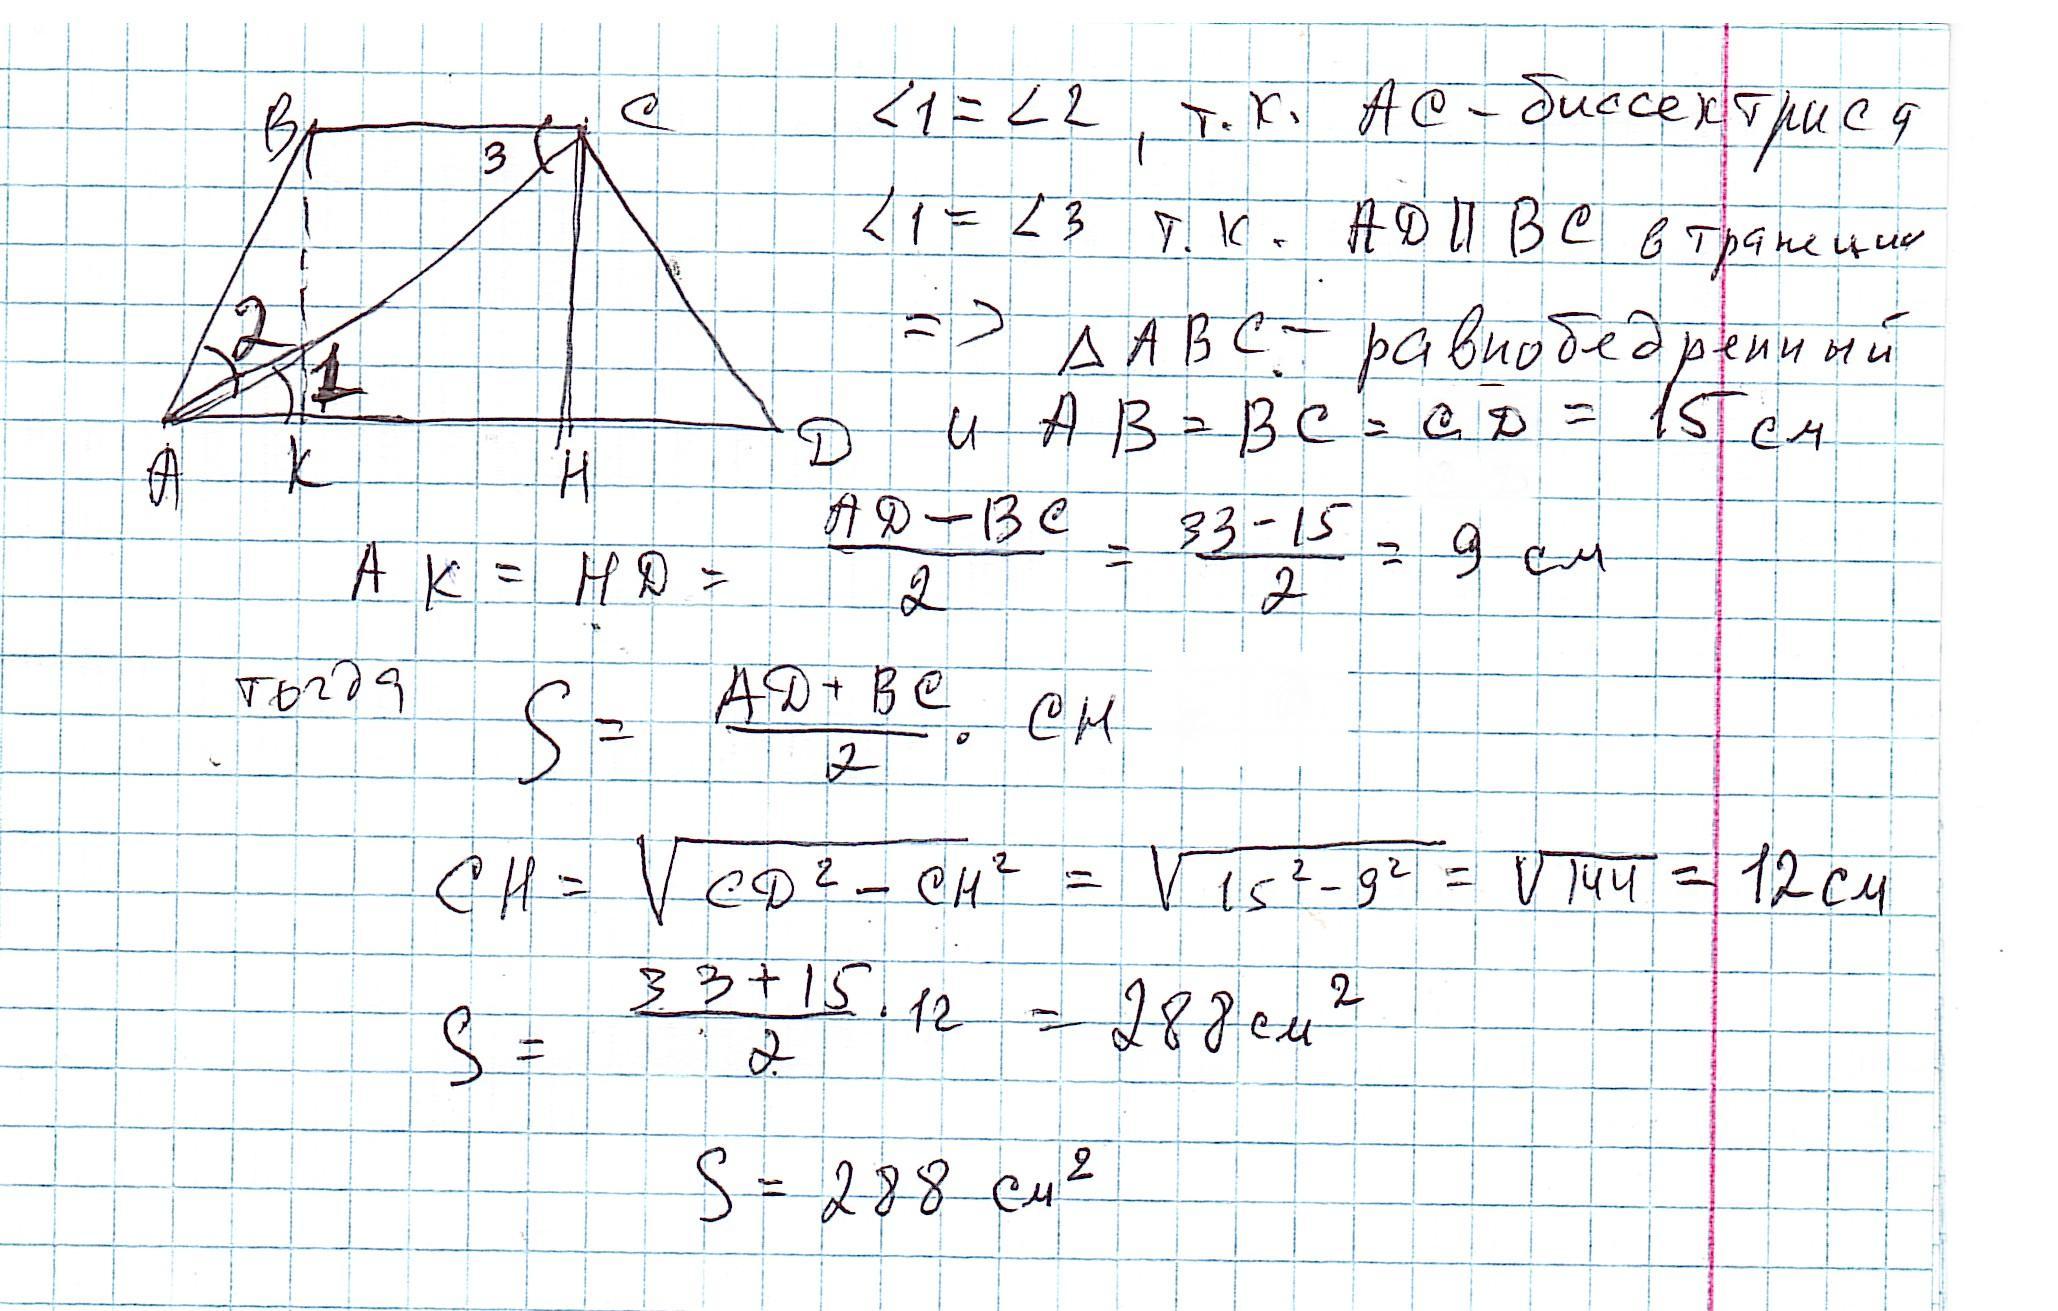 B C ∠1 = ∠2, т.к. AC – биссектриса
3
∠1 = ∠3 т.к. AD || BC в трапеции
2 => △ABC – равнобедренный
1
A K H D и AB = BC = CD = 15 см
AK = HD = (AD – BC)/2 = (33 - 15)/2 = 9 см
тогда S = (AD + BC)/2 · CH
CH = √(CD² – CH²) = √(15² - 9²) = √144 = 12 см
S = (33 + 15)/2 · 12 = 288 см²
S = 288 см²